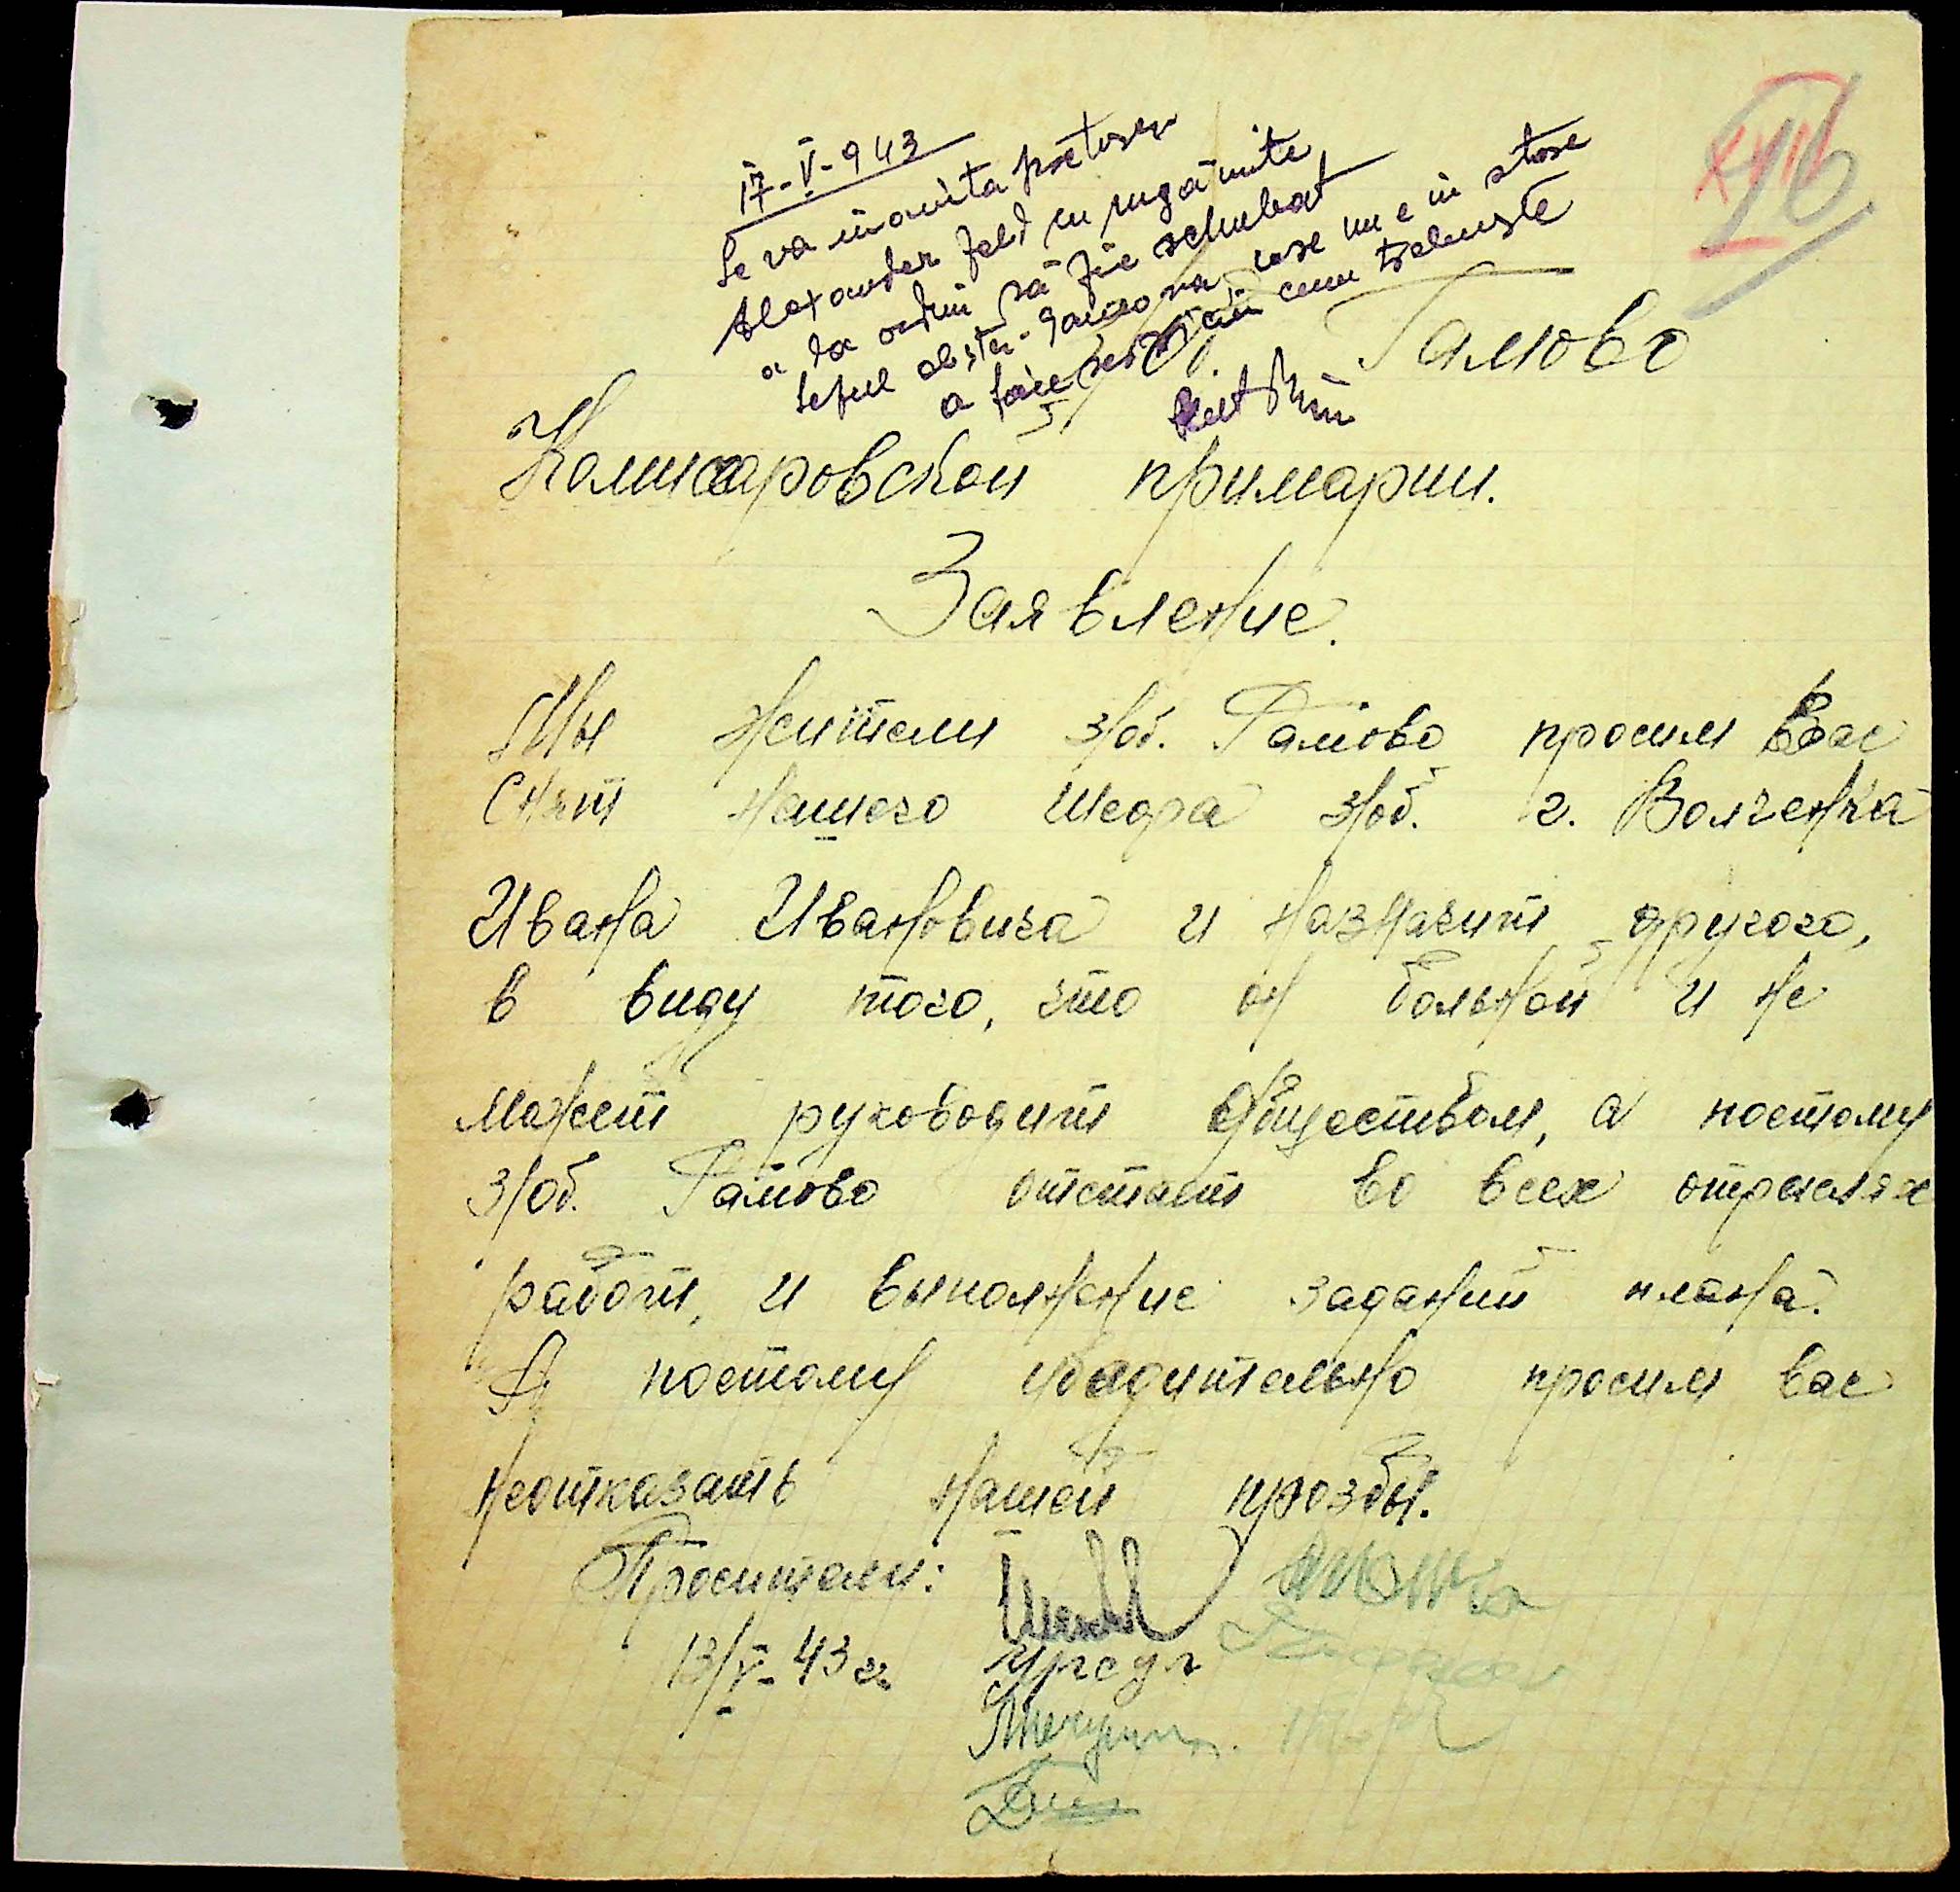 17-V-943
Se va înainta preturii
Alexander feld cu rugămintea
a da ordin să fie schimbat
șeful obștei Gamovo nu e în stare
a face serviciu cum trebuește
Гамово
Комисаровской примарии.
Заявление.
Мы жители з/об. Гамово просим Вас
Снят нашего Шефа з/об. г. Волченка
Ивана Ивановича и назначит другого,
в виду того, что он больной и не
может руководит обществом, а поетому
з/об. Гамово отстает во всех отраслях
работ, и выполнение заданий плана.
А поетому убедительно просим вас
неотказать нашей прозбы.
Просители:
13/V-43 г.
Урсул